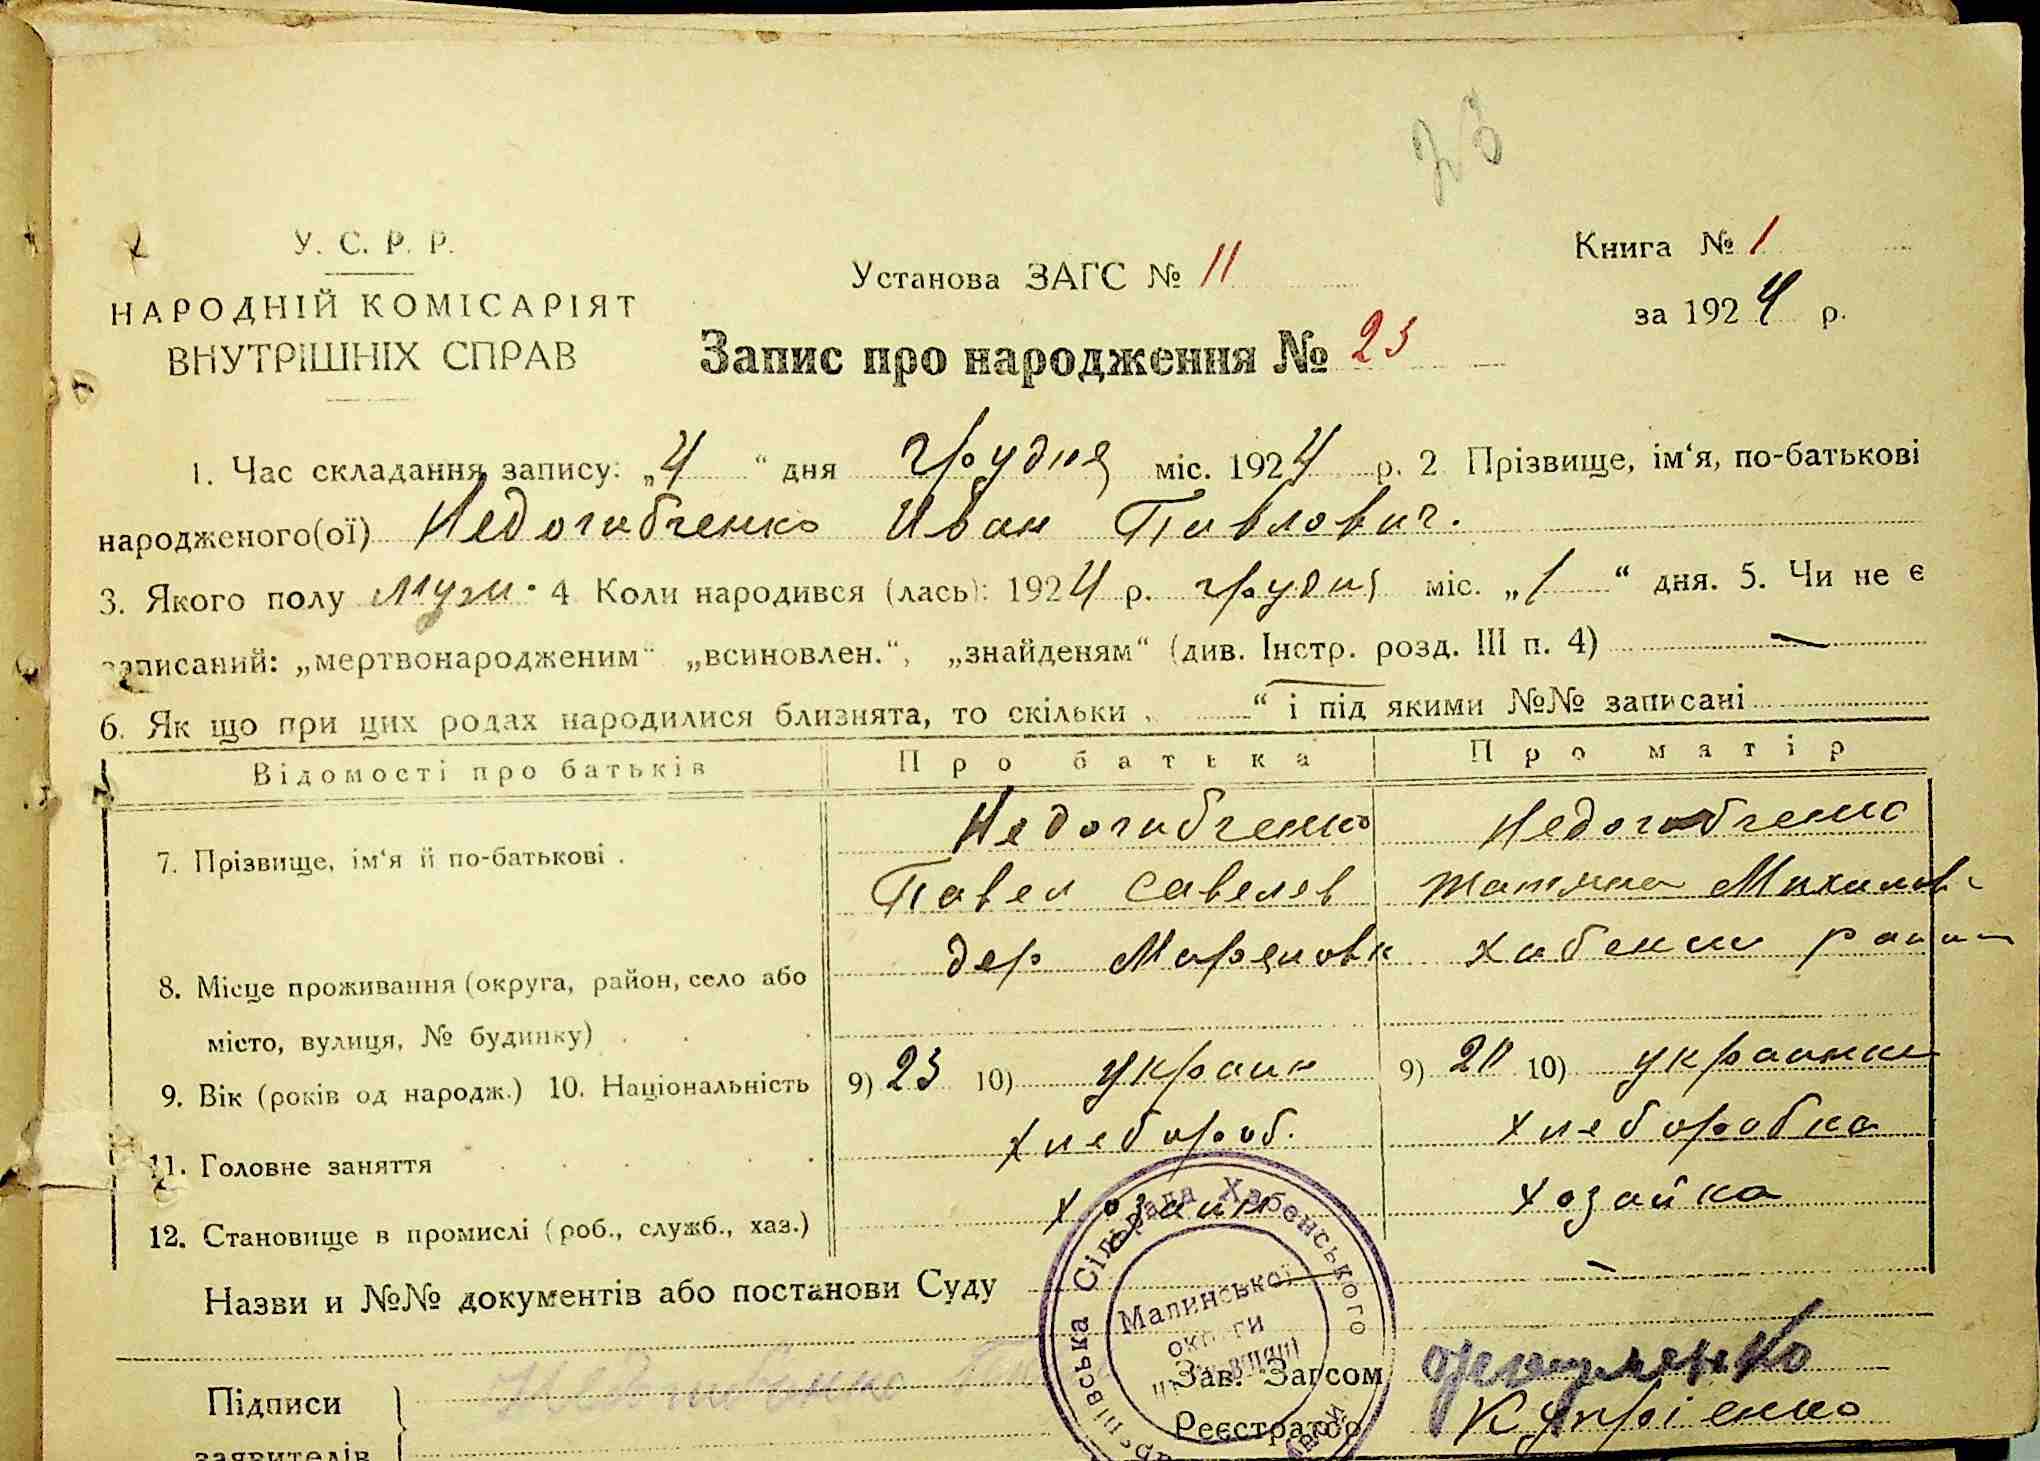 23
У. С. Р. Р.
НАРОДНІЙ КОМІСАРІЯТ
ВНУТРІШНІХ СПРАВ
Установа ЗАГС № 11
Книга № 1
за 1924 р.
Запис про народження № 23
1. Час складання запису: „4“ дня грудня міс. 1924 р. 2 Прізвище, ім‘я, по-батькові
народженого(ої) Недогибченко Иван Павлович.
3. Якого полу муж. 4 Коли народився (лась): 1924 р. грудня міс. „1“ дня. 5. Чи не є
записаний: „мертвонародженим“ „всиновлен.“, „знайденям“ (див. Інстр. розд. III п. 4) —
6. Як що при цих родах народилися близнята, то скільки „ “ і під якими №№ записані
Відомості про батьків Про батька Про матір
Недогибченко Недогибченко
7. Прізвище, ім‘я й по-батькові .
Павел Савелев Татяна Михилов
дер Маряновк Хабенск район
8. Місце проживання (округа, район, село або
місто, вулиця, № будинку)
9. Вік (років од народж.) 10. Національність 9) 23 10) украин 9) 20 10) украинка
11. Головне заняття хлебороб. хлеборобка
12. Становище в промислі (роб., служб., хаз.) хозаин хозайка
Назви и №№ документів або постанови Суду —
Сільрада Хабенського
Малинської
округи
Підписи
заявителів
Зав. Загсом
Реєстратор Купріенко